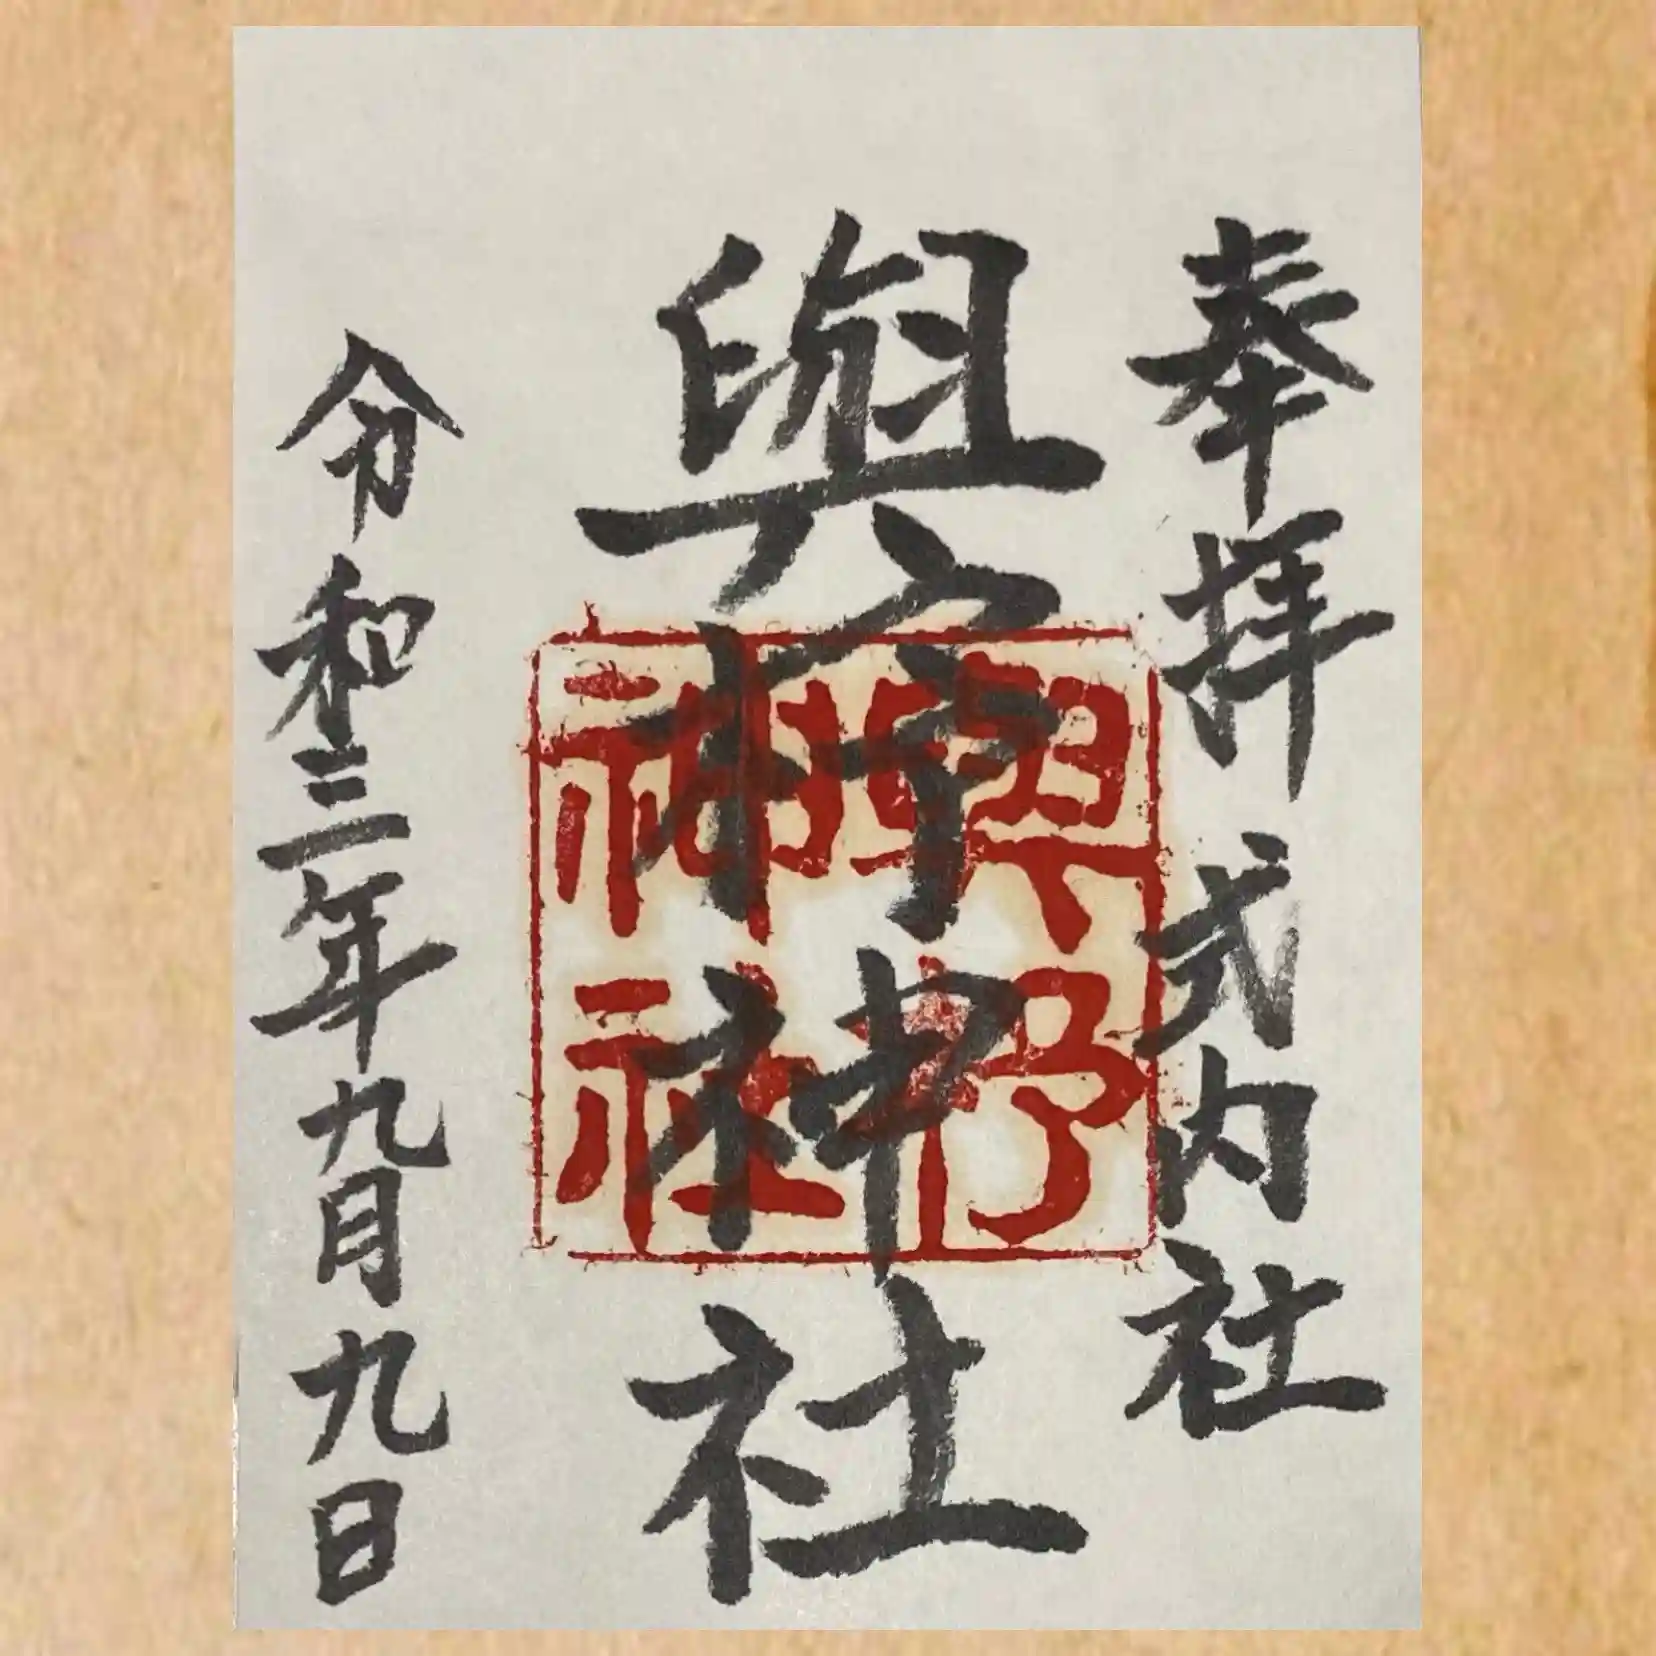 奉拝 式内社
與杼神社
令和三年九月九日
與杼
神社